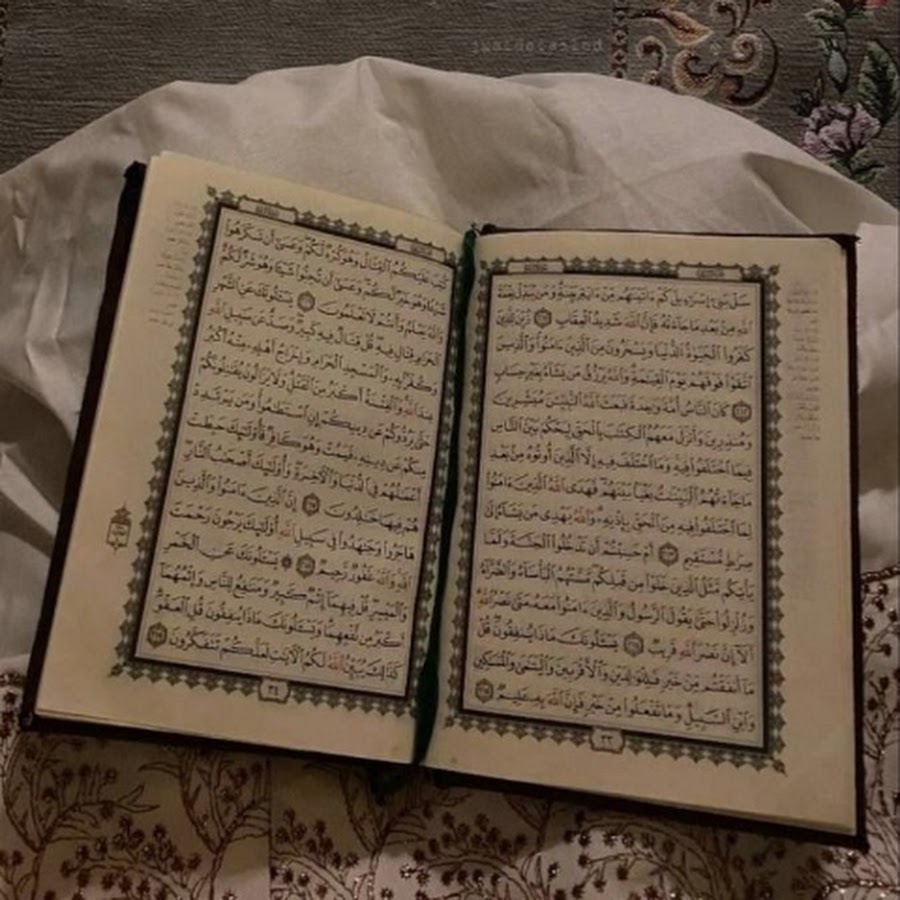 سَلْ بَنِىٓ إِسْرَٰٓءِيلَ كَمْ ءَاتَيْنَٰهُم مِّنْ ءَايَةٍۭ بَيِّنَةٍ وَمَن يُبَدِّلْ نِعْمَةَ
ٱللَّهِ مِنۢ بَعْدِ مَا جَآءَتْهُ فَإِنَّ ٱللَّهَ شَدِيدُ ٱلْعِقَابِ ٢١١ زُيِّنَ لِلَّذِينَ
كَفَرُوا۟ ٱلْحَيَوٰةُ ٱلدُّنْيَا وَيَسْخَرُونَ مِنَ ٱلَّذِينَ ءَامَنُوا۟ وَٱلَّذِينَ
ٱتَّقَوْا۟ فَوْقَهُمْ يَوْمَ ٱلْقِيَٰمَةِ وَٱللَّهُ يَرْزُقُ مَن يَشَآءُ بِغَيْرِ حِسَابٍ
٢١٢ كَانَ ٱلنَّاسُ أُمَّةً وَٰحِدَةً فَبَعَثَ ٱللَّهُ ٱلنَّبِيِّۦنَ مُبَشِّرِينَ
وَمُنذِرِينَ وَأَنزَلَ مَعَهُمُ ٱلْكِتَٰبَ بِٱلْحَقِّ لِيَحْكُمَ بَيْنَ ٱلنَّاسِ
فِيمَا ٱخْتَلَفُوا۟ فِيهِ وَمَا ٱخْتَلَفَ فِيهِ إِلَّا ٱلَّذِينَ أُوتُوهُ مِنۢ بَعْدِ
مَا جَآءَتْهُمُ ٱلْبَيِّنَٰتُ بَغْيًۢا بَيْنَهُمْ فَهَدَى ٱللَّهُ ٱلَّذِينَ ءَامَنُوا۟
لِمَا ٱخْتَلَفُوا۟ فِيهِ مِنَ ٱلْحَقِّ بِإِذْنِهِۦ وَٱللَّهُ يَهْدِى مَن يَشَآءُ إِلَىٰ
صِرَٰطٍ مُّسْتَقِيمٍ ٢١٣ أَمْ حَسِبْتُمْ أَن تَدْخُلُوا۟ ٱلْجَنَّةَ وَلَمَّا
يَأْتِكُم مَّثَلُ ٱلَّذِينَ خَلَوْا۟ مِن قَبْلِكُم مَّسَّتْهُمُ ٱلْبَأْسَآءُ وَٱلضَّرَّآءُ
وَزُلْزِلُوا۟ حَتَّىٰ يَقُولَ ٱلرَّسُولُ وَٱلَّذِينَ ءَامَنُوا۟ مَعَهُۥ مَتَىٰ نَصْرُ ٱللَّهِ
أَلَآ إِنَّ نَصْرَ ٱللَّهِ قَرِيبٌ ٢١٤ يَسْـَٔلُونَكَ مَاذَا يُنفِقُونَ قُلْ
مَآ أَنفَقْتُم مِّنْ خَيْرٍ فَلِلْوَٰلِدَيْنِ وَٱلْأَقْرَبِينَ وَٱلْيَتَٰمَىٰ وَٱلْمَسَٰكِينِ
وَٱبْنِ ٱلسَّبِيلِ وَمَا تَفْعَلُوا۟ مِنْ خَيْرٍ فَإِنَّ ٱللَّهَ بِهِۦ عَلِيمٌ ٢١٥
٣٣
كُتِبَ عَلَيْكُمُ ٱلْقِتَالُ وَهُوَ كُرْهٌ لَّكُمْ وَعَسَىٰٓ أَن تَكْرَهُوا۟
شَيْـًٔا وَهُوَ خَيْرٌ لَّكُمْ وَعَسَىٰٓ أَن تُحِبُّوا۟ شَيْـًٔا وَهُوَ شَرٌّ لَّكُمْ
وَٱللَّهُ يَعْلَمُ وَأَنتُمْ لَا تَعْلَمُونَ ٢١٦ يَسْـَٔلُونَكَ عَنِ ٱلشَّهْرِ
ٱلْحَرَامِ قِتَالٍ فِيهِ قُلْ قِتَالٌ فِيهِ كَبِيرٌ وَصَدٌّ عَن سَبِيلِ ٱللَّهِ
وَكُفْرٌۢ بِهِۦ وَٱلْمَسْجِدِ ٱلْحَرَامِ وَإِخْرَاجُ أَهْلِهِۦ مِنْهُ أَكْبَرُ
عِندَ ٱللَّهِ وَٱلْفِتْنَةُ أَكْبَرُ مِنَ ٱلْقَتْلِ وَلَا يَزَالُونَ يُقَٰتِلُونَكُمْ
حَتَّىٰ يَرُدُّوكُمْ عَن دِينِكُمْ إِنِ ٱسْتَطَٰعُوا۟ وَمَن يَرْتَدِدْ
مِنكُمْ عَن دِينِهِۦ فَيَمُتْ وَهُوَ كَافِرٌ فَأُو۟لَٰٓئِكَ حَبِطَتْ
أَعْمَٰلُهُمْ فِى ٱلدُّنْيَا وَٱلْـَٔاخِرَةِ وَأُو۟لَٰٓئِكَ أَصْحَٰبُ ٱلنَّارِ
هُمْ فِيهَا خَٰلِدُونَ ٢١٧ إِنَّ ٱلَّذِينَ ءَامَنُوا۟ وَٱلَّذِينَ
هَاجَرُوا۟ وَجَٰهَدُوا۟ فِى سَبِيلِ ٱللَّهِ أُو۟لَٰٓئِكَ يَرْجُونَ رَحْمَتَ
ٱللَّهِ وَٱللَّهُ غَفُورٌ رَّحِيمٌ ٢١٨ ۞ يَسْـَٔلُونَكَ عَنِ ٱلْخَمْرِ
وَٱلْمَيْسِرِ قُلْ فِيهِمَآ إِثْمٌ كَبِيرٌ وَمَنَٰفِعُ لِلنَّاسِ وَإِثْمُهُمَآ
أَكْبَرُ مِن نَّفْعِهِمَا وَيَسْـَٔلُونَكَ مَاذَا يُنفِقُونَ قُلِ ٱلْعَفْوَ
كَذَٰلِكَ يُبَيِّنُ ٱللَّهُ لَكُمُ ٱلْـَٔايَٰتِ لَعَلَّكُمْ تَتَفَكَّرُونَ ٢١٩
٣٤